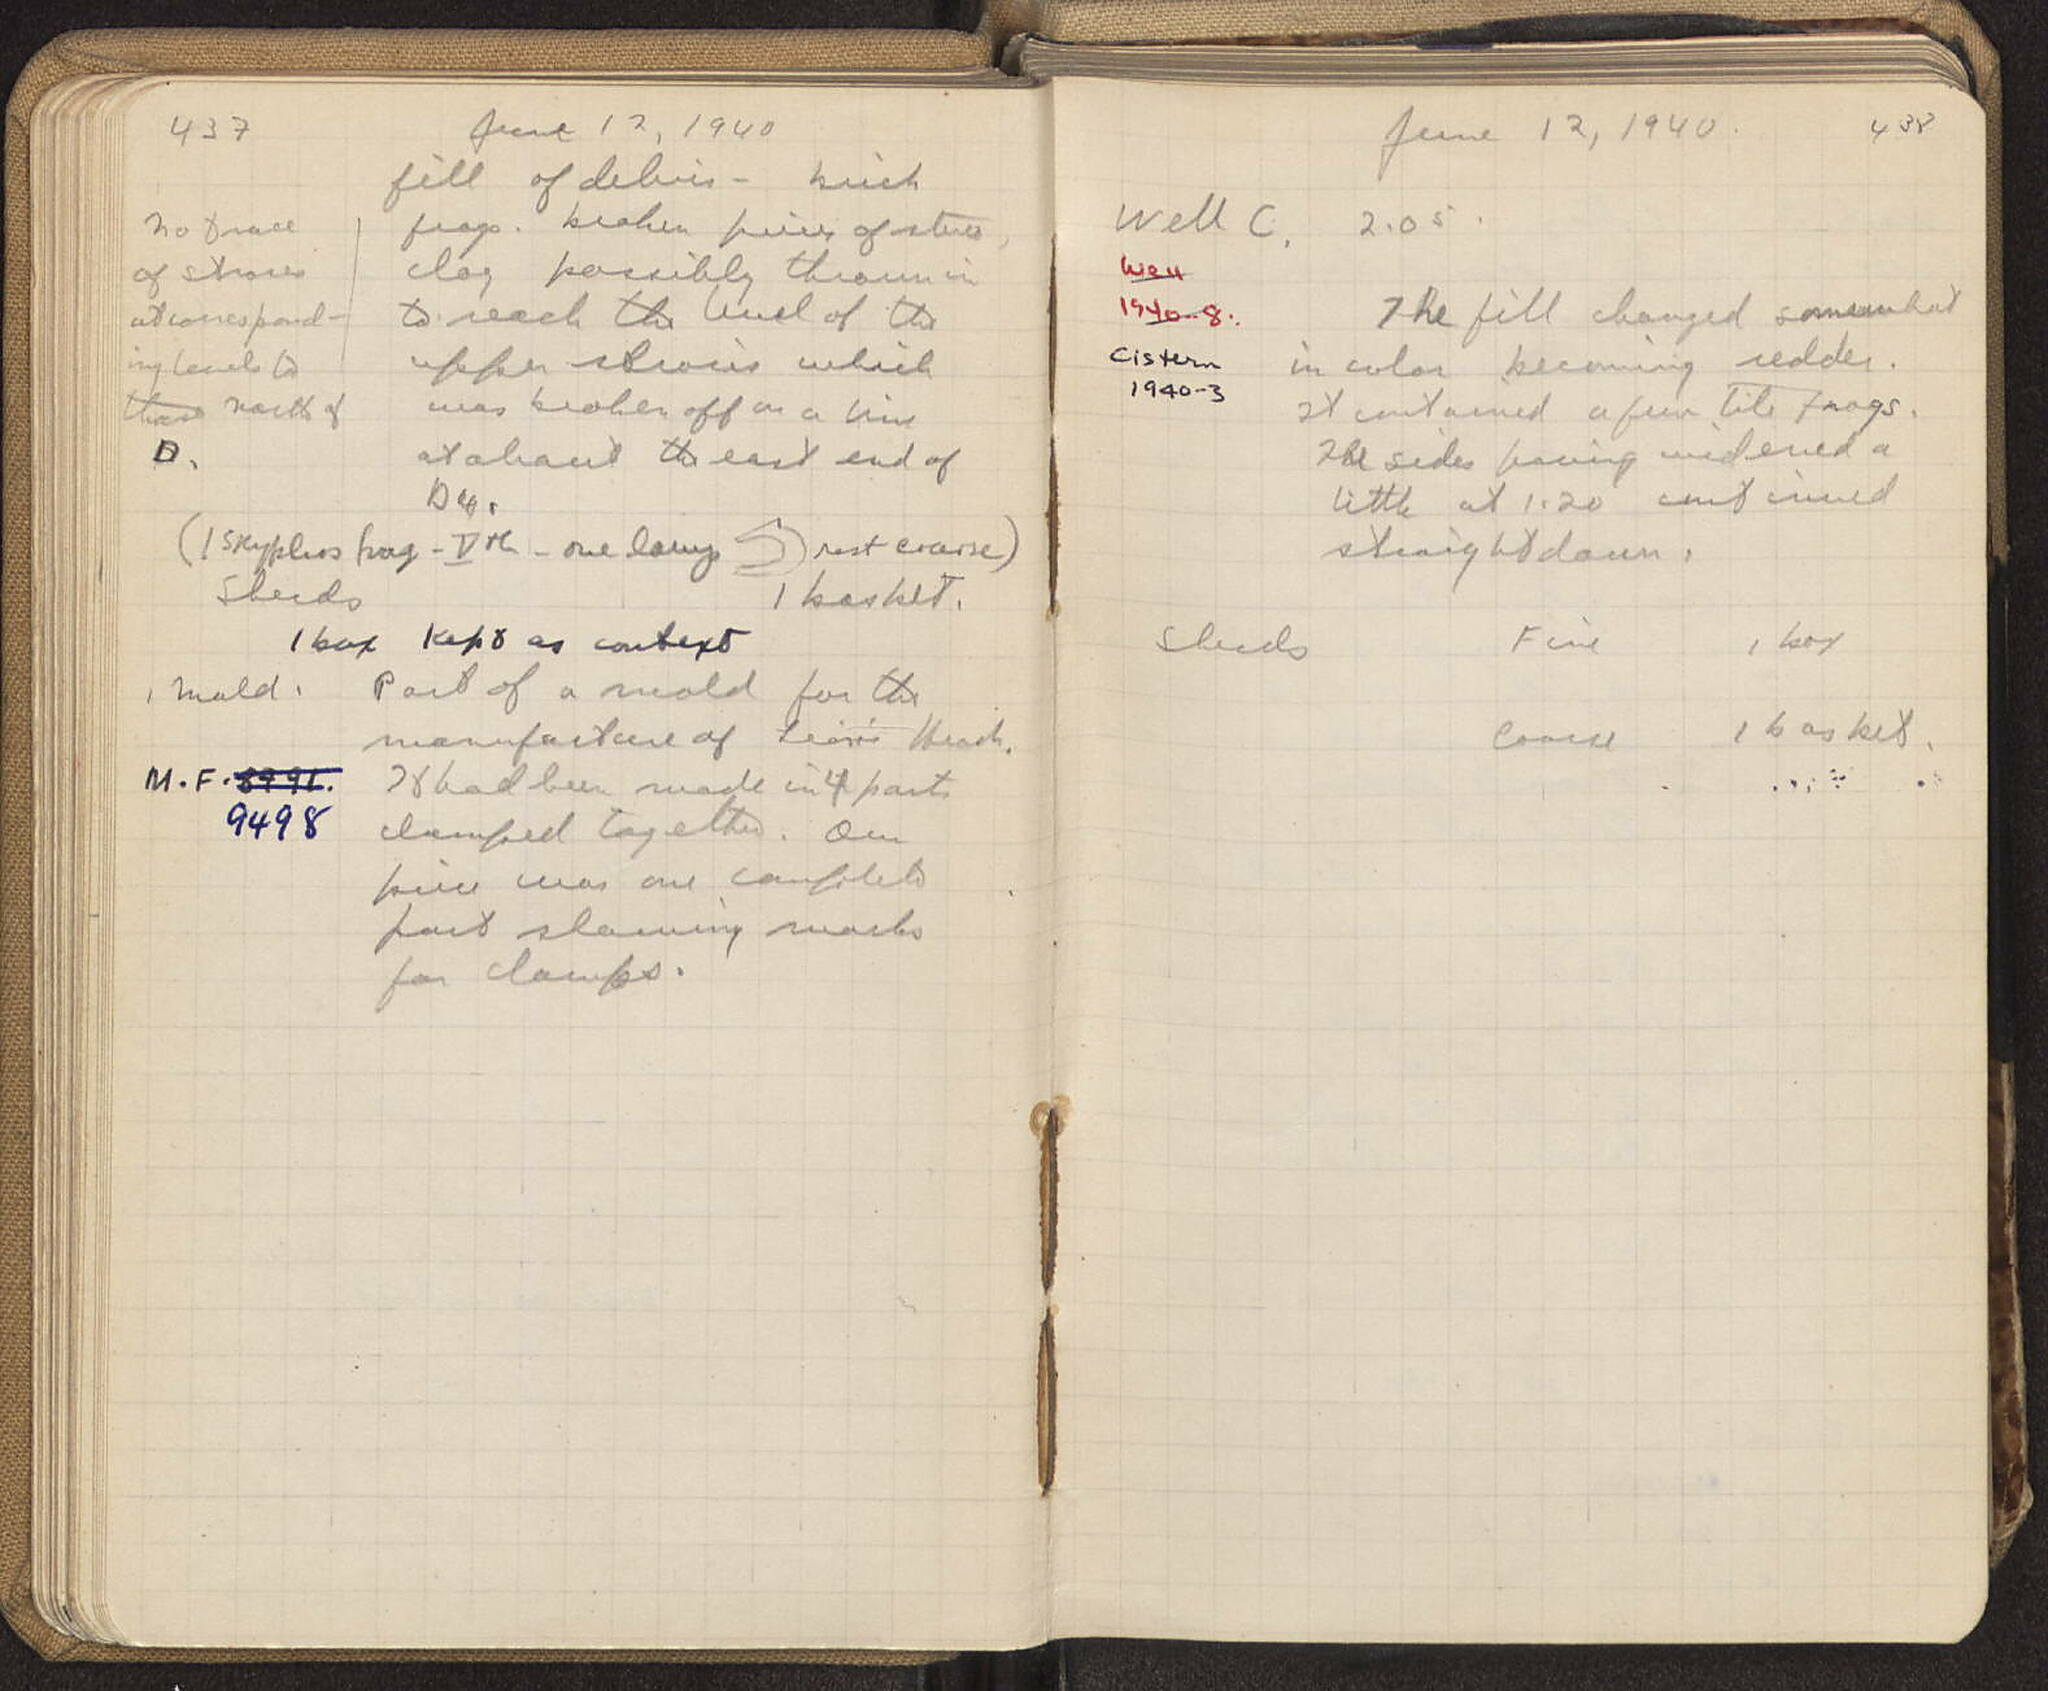 437
June 12, 1940
fill of debris - brick
frags. broken pieces of stone,
clay possibly thrown in
to reach the level of the
upper stroses which
was broken off on a line
at about the east end of
D4.
No trace
of stroses
at correspond-
ing levels to
those north of
D.
(1 skyphos frag - Vth - one lamp rest coarse)
Sherds 1 basket.
1 box kept as context
1 Mold. Part of a mold for the
manufacture of Lion's Heads.
M.F. 8991. It had been made in 4 parts
9498 clamped together. Our
piece was one complete
part showing marks
for clamps.
June 12, 1940.
438
Well C. 2.05.
Well
1940-8.
Cistern
1940-3
The fill changed somewhat
in color becoming redder.
It contained a few tile frags.
The sides having widened a
little at 1.20 continued
straight down.
Sherds Fine 1 box
Coarse 1 basket.